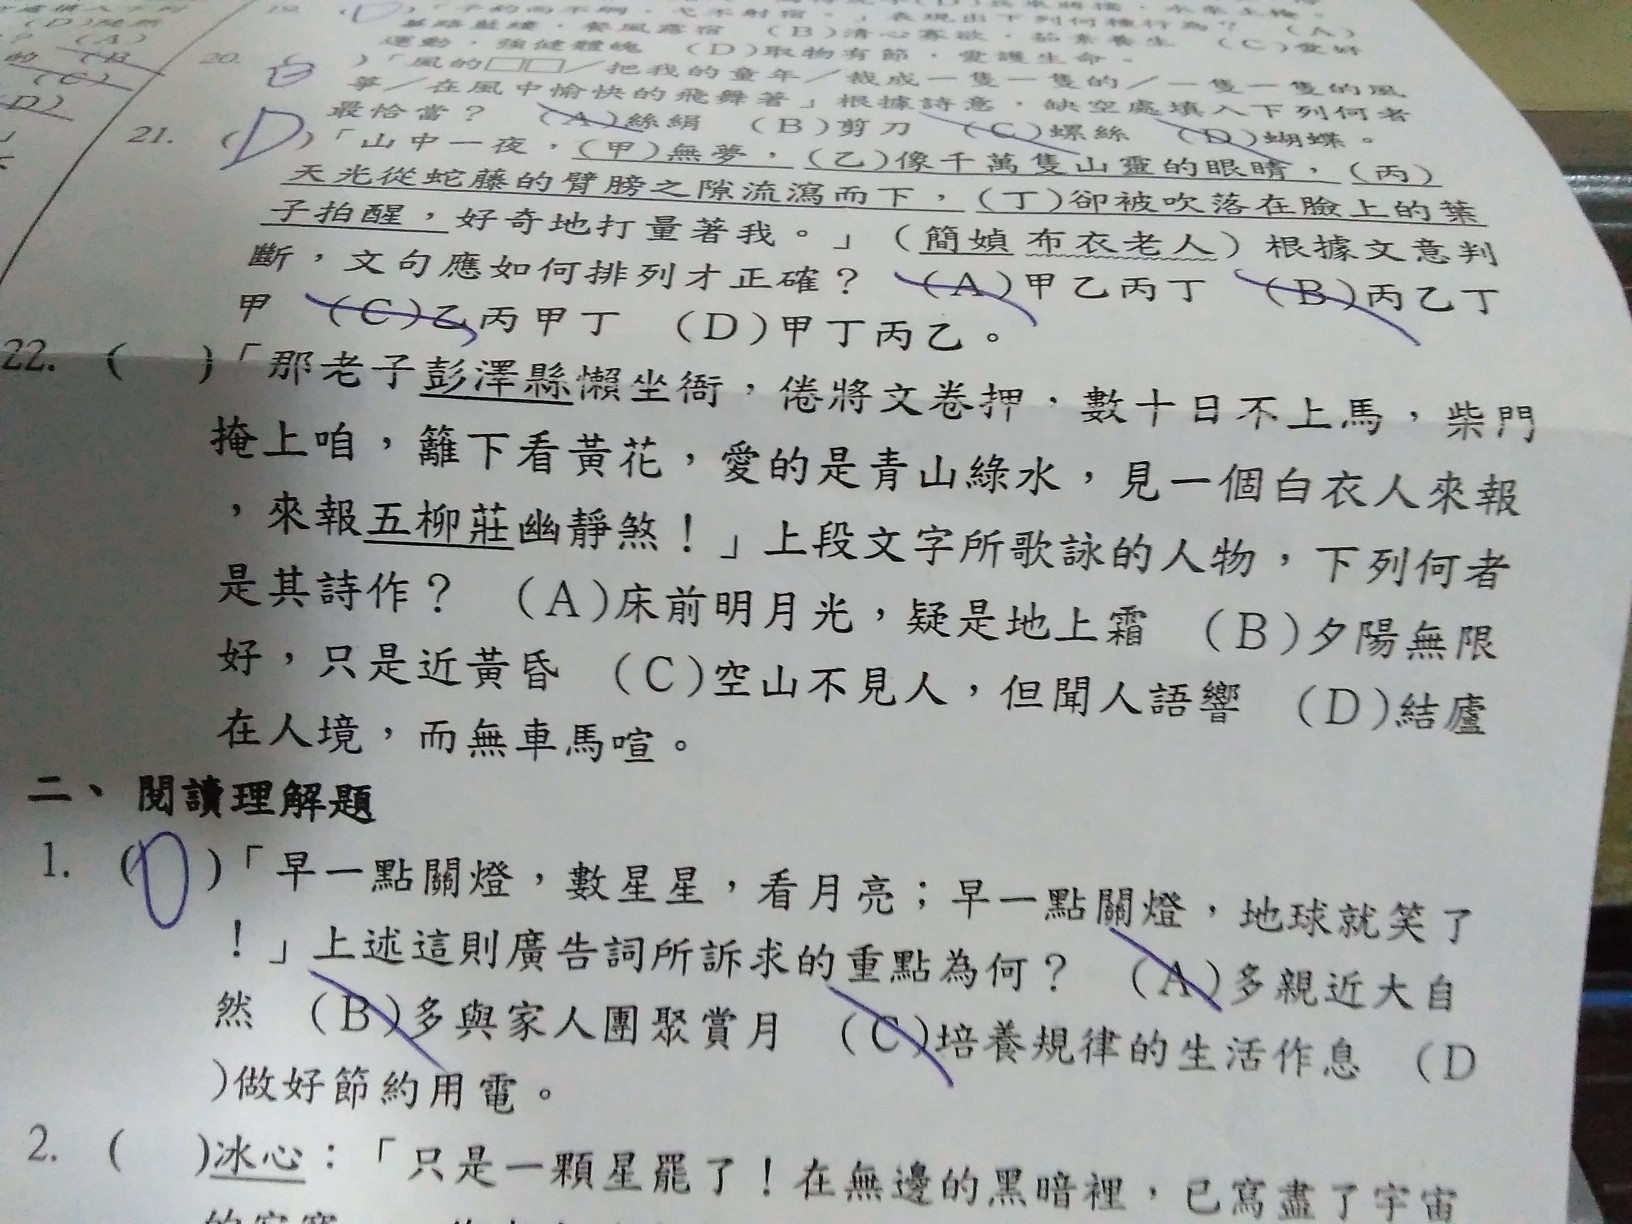 (D)隨然
(A)
的 (B
(C)
(D)
19. ( D )「子釣而不綱,弋不射宿。」表現出下列何種行為? (A)
篳路藍縷,餐風露宿 (B)清心寡欲,茹素養生 (C)愛好
運動,強健體魄 (D)取物有節,愛護生命。
20. ( B )「風的□□/把我的童年/裁成一隻一隻的/一隻一隻的風
箏/在風中愉快的飛舞著」根據詩意,缺空處填入下列何者
最恰當? (A)絲絹 (B)剪刀 (C)螺絲 (D)蝴蝶。
21. ( D )「山中一夜,(甲)無夢,(乙)像千萬隻山靈的眼睛,(丙)
天光從蛇藤的臂膀之隙流瀉而下,(丁)卻被吹落在臉上的葉
子拍醒,好奇地打量著我。」(簡媜 布衣老人)根據文意判
斷,文句應如何排列才正確? (A)甲乙丙丁 (B)丙乙丁
甲 (C)乙丙甲丁 (D)甲丁丙乙。
22. ( )「那老子彭澤縣懶坐衙,倦將文卷押,數十日不上馬,柴門
掩上咱,籬下看黃花,愛的是青山綠水,見一個白衣人來報
,來報五柳莊幽靜煞!」上段文字所歌詠的人物,下列何者
是其詩作? (A)床前明月光,疑是地上霜 (B)夕陽無限
好,只是近黃昏 (C)空山不見人,但聞人語響 (D)結廬
在人境,而無車馬喧。
二、閱讀理解題
1. ( D )「早一點關燈,數星星,看月亮;早一點關燈,地球就笑了
!」上述這則廣告詞所訴求的重點為何? (A)多親近大自
然 (B)多與家人團聚賞月 (C)培養規律的生活作息 (D
)做好節約用電。
2. ( )冰心:「只是一顆星罷了!在無邊的黑暗裡,已寫盡了宇宙